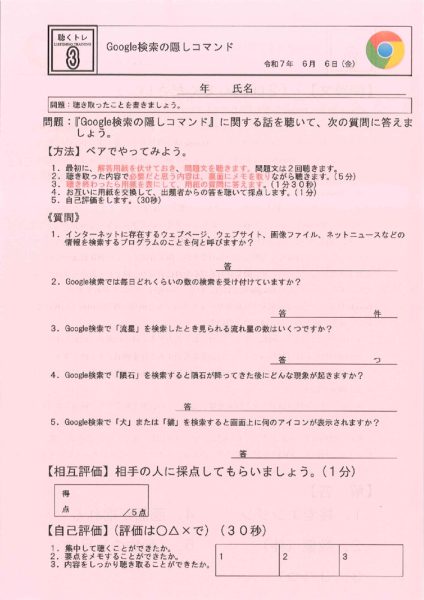 聴くトレ
LISTENING TRAINING
3
Google検索の隠しコマンド
令和7年 6月 6日(金)
年 氏名
問題:聴き取ったことを書きましょう。
問題:『Google検索の隠しコマンド』に関する話を聴いて、次の質問に答えま
しょう。
【方法】ペアでやってみよう。
1.最初に、解答用紙を伏せておき、問題文を聴きます。問題文は2回聴きます。
2.聴き取った内容で必要だと思う内容は、裏面にメモを取りながら聴きます。(5分)
3.聴き終わったら用紙を表にして、用紙の質問に答えます。(1分30秒)
4.お互いに用紙を交換して、出題者からの答を聴いて採点します。(1分)
5.自己評価をします。(30秒)
《質問》
1.インターネットに存在するウェブページ、ウェブサイト、画像ファイル、ネットニュースなどの
情報を検索するプログラムのことを何と呼びますか?
答
2.Google検索では毎日どれくらいの数の検索を受け付けていますか?
答 件
3.Google検索で「流星」を検索したとき見られる流れ星の数はいくつですか?
答 つ
4.Google検索で「隕石」を検索すると隕石が降ってきた後にどんな現象が起きますか?
答
5.Google検索で「犬」または「猫」を検索すると画面上に何のアイコンが表示されますか?
答
【相互評価】相手の人に採点してもらいましょう。(1分)
得
点 /5点
【自己評価】(評価は○△×で)(30秒)
1.集中して聴くことができたか。
2.要点をメモすることができたか。
3.内容をしっかり聴き取ることができたか。
1 2 3